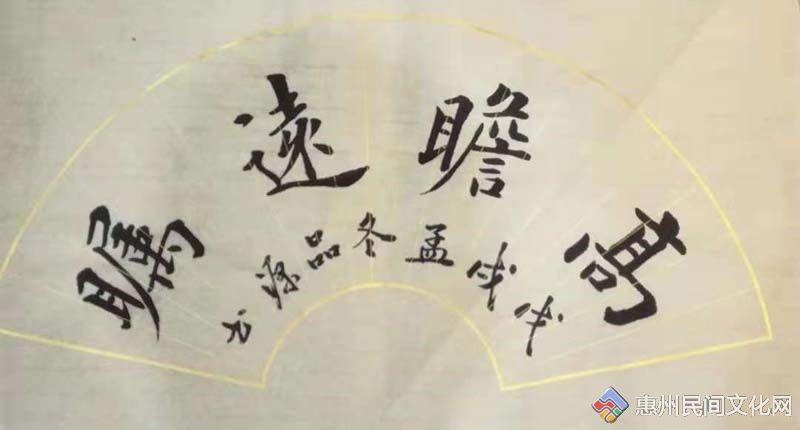 高瞻遠矚
戊戌孟冬品源书
惠州民间文化网